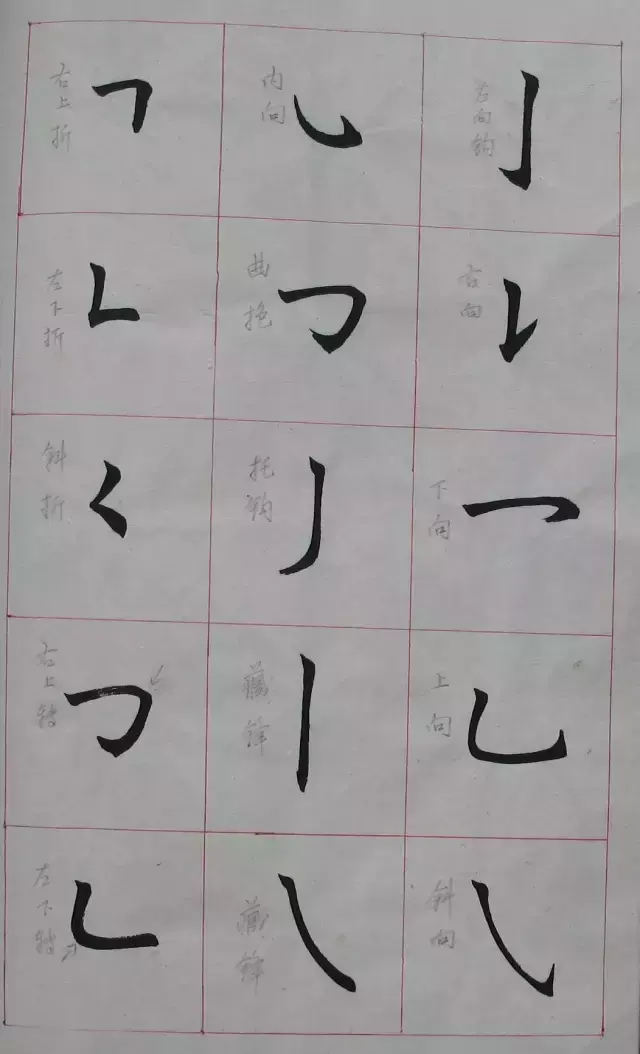 右上折
内向
左向钩
左下折
曲抱
右向
斜折
托钩
下向
右上转
藏锋
上向
左下转
藏锋
斜向